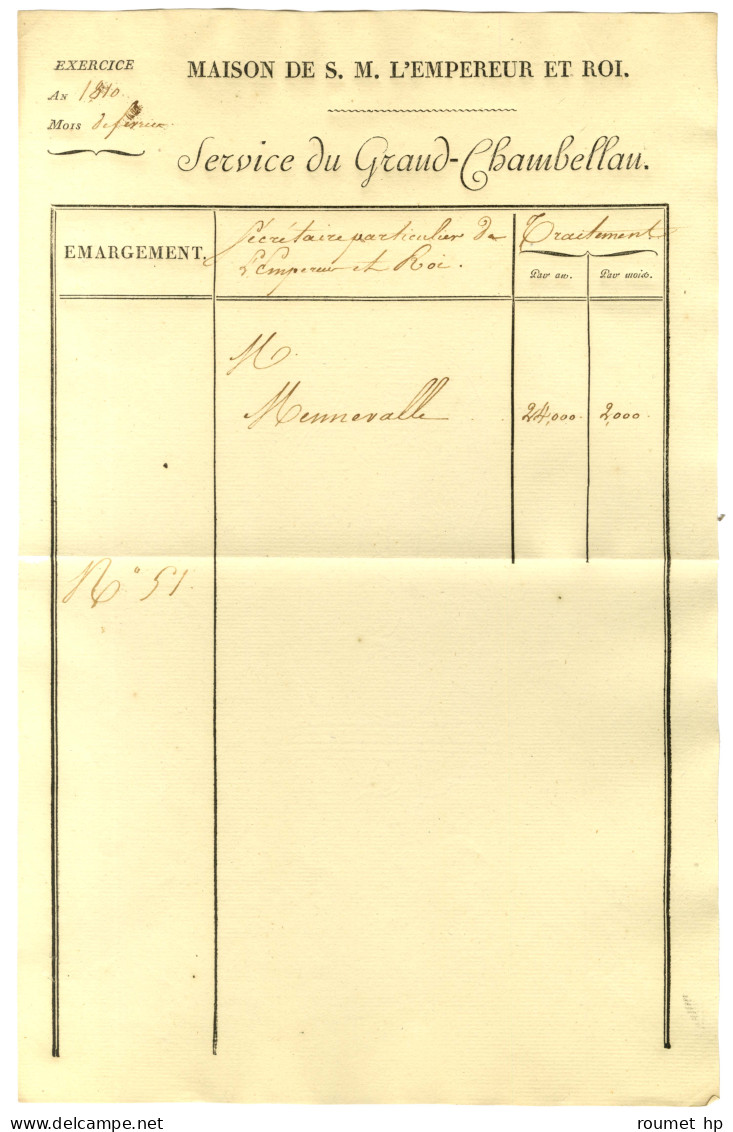 EXERCICE
An 1810.
Mois de février
MAISON DE S. M. L'EMPEREUR ET ROI.
Service du Grand-Chambellan.
EMARGEMENT.
Sécrétaire particulier de
L'Empereur et Roi.
Traitement
Par an.
Par mois.
M.
Mennevalle
24,000.
2,000.
N° 51.
delcampe.net
roumet hp